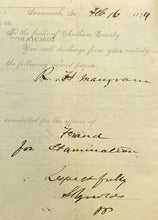 Savannah, Ga., Feb 16 1884
To the Jailor of Chatham County:
You will discharge from your custody
the following named person
R. H. Mangram
committed for the offence of
Fraud
for Examination
Respectfully